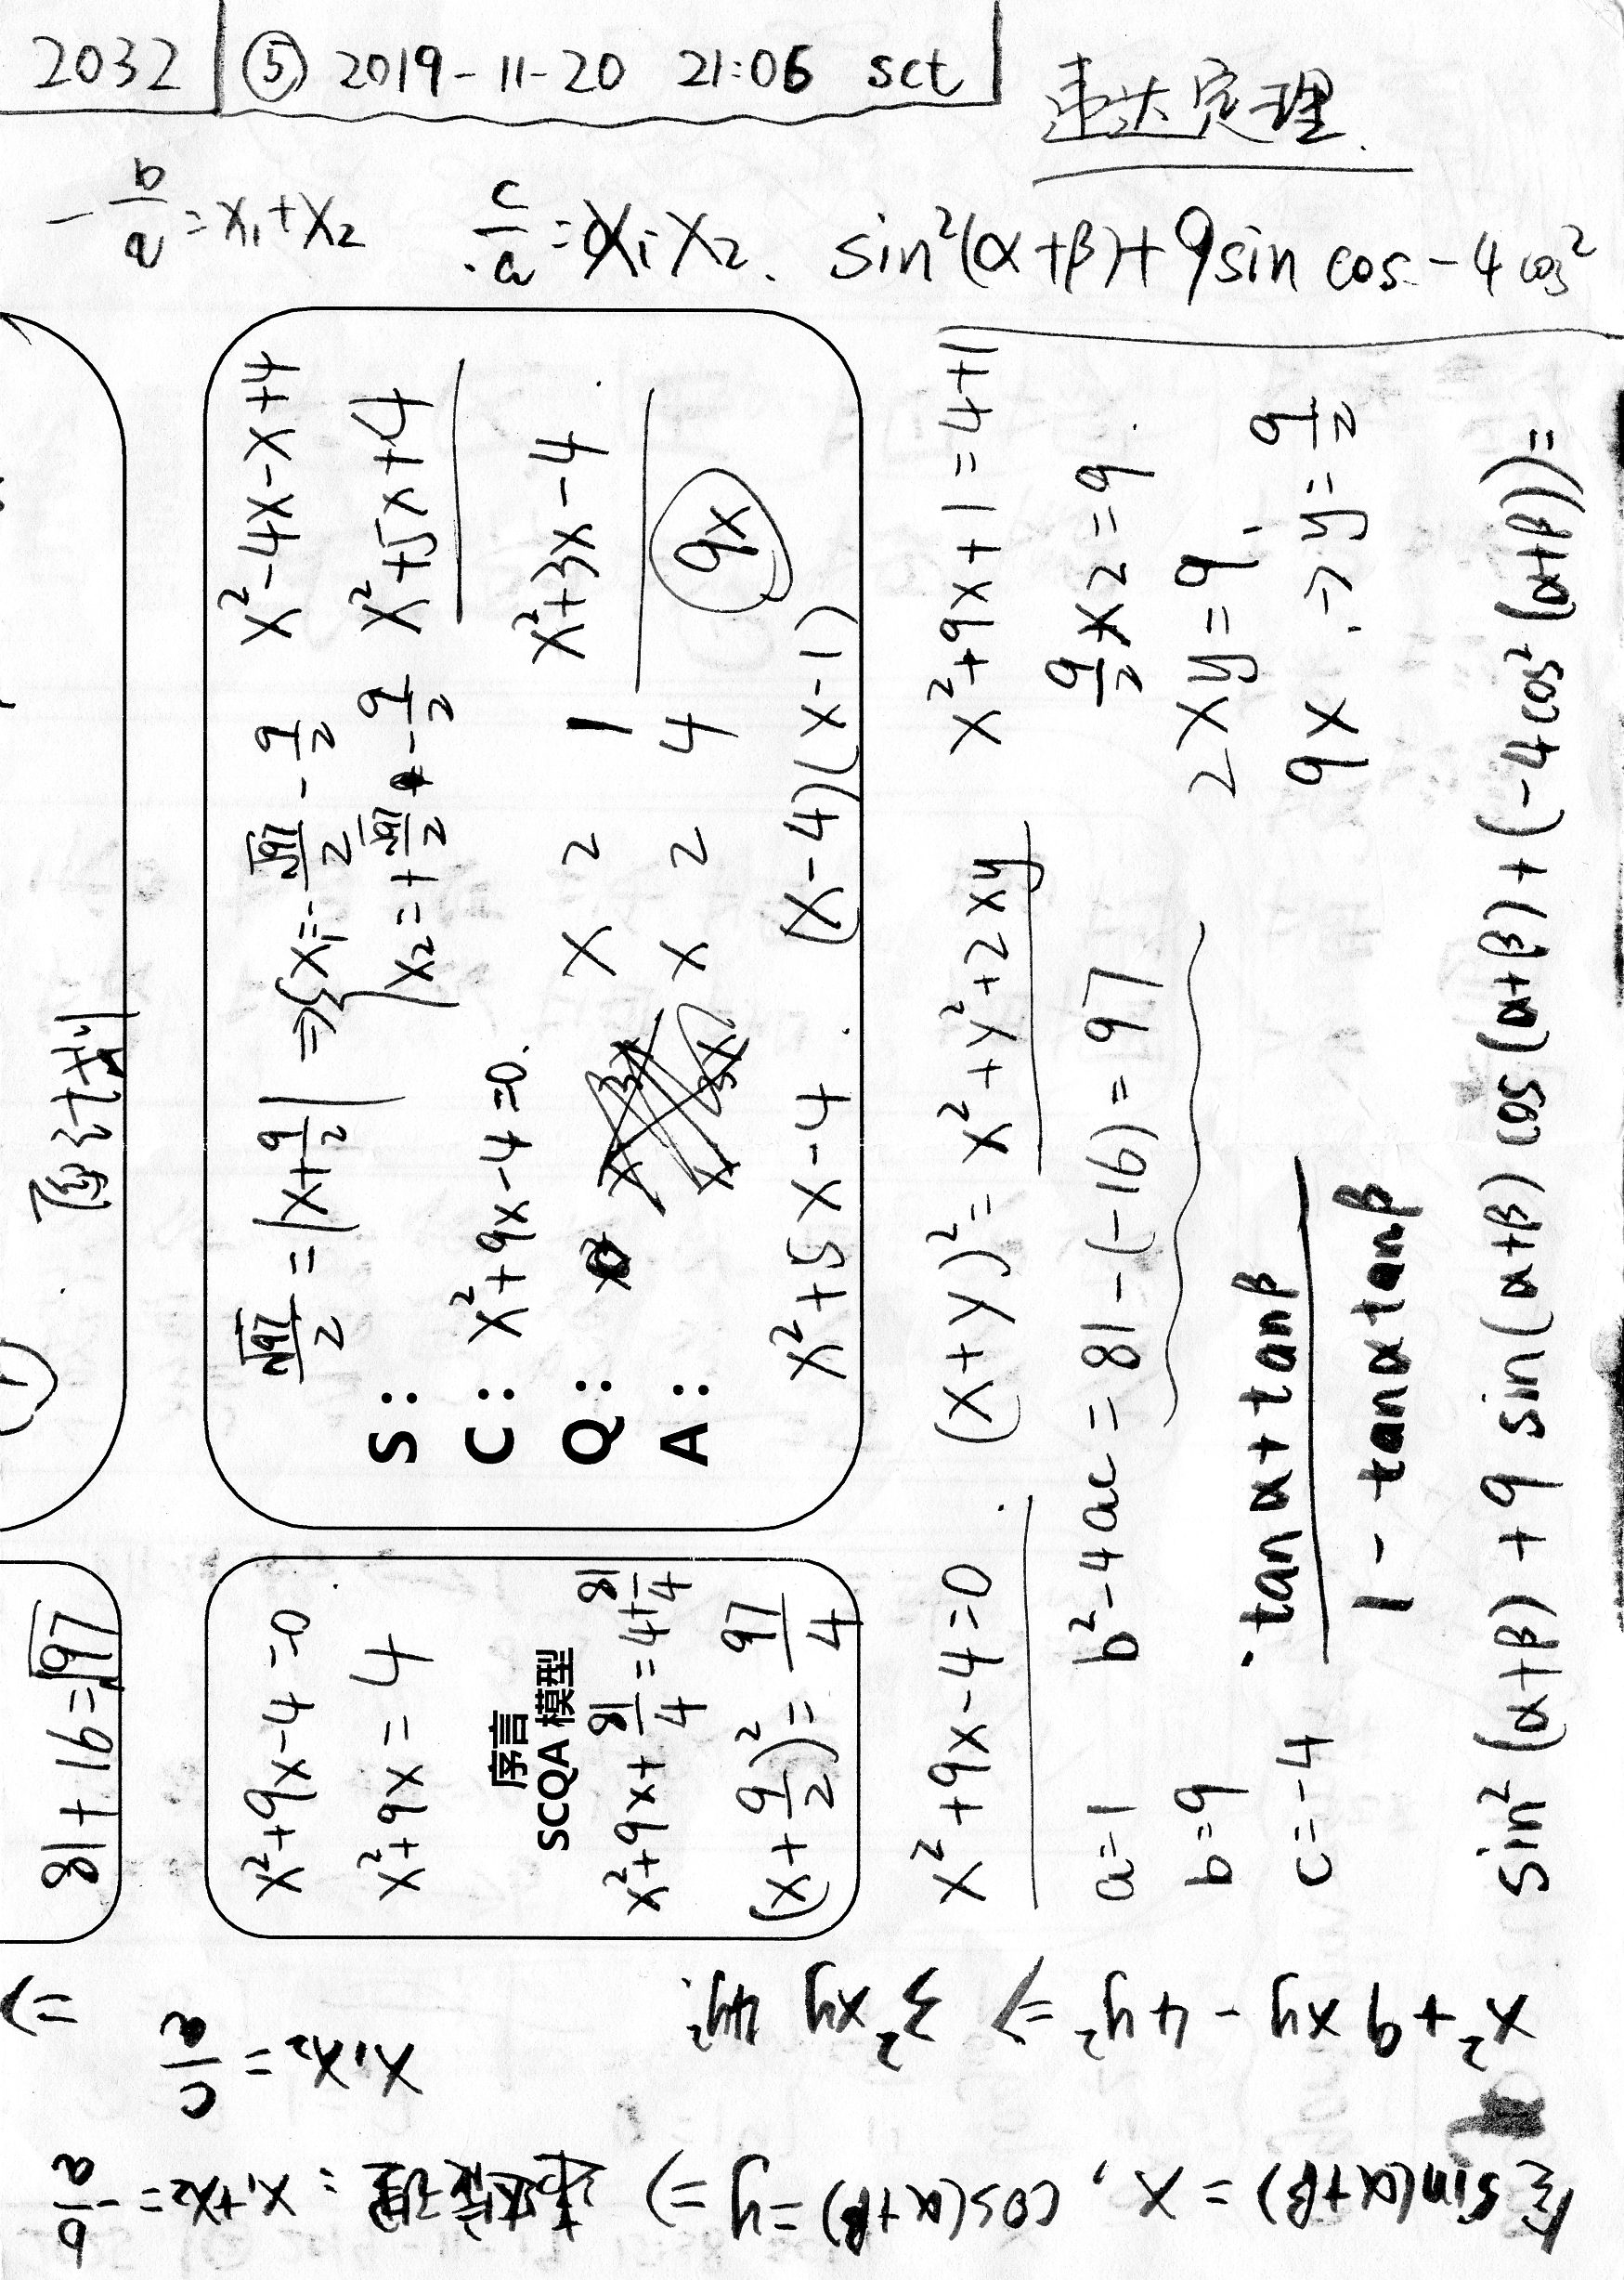 2032 ⑤ 2019-11-20 21:06 sct
韦达定理.
-b/a=x₁+x₂ c/a=x₁·x₂. sin²(α+β)+9sin cos-4cos²
81+16=√97
原计划
x²+9x-4=0
x²+9x=4
序言
SCQA 模型
x²+9x+81/4=4+81/4
(x+9/2)²=97/4
√97/2=|x+9/2| ⇒{x₁=-√97/2-9/2 x²-4x-x+4
x₂=+√97/2-9/2 x²+5x+4
S:
C: x²+9x-4=0. x²+3x-4
Q: x 2 1
A: x 2 4 9x
x²+5x-4. (x-4)(x-1)
x²+9x-4=0. (x+y)²=x²+y²+2xy x²+9x+1=4+1
a=1 b²-4ac=81-(-16)=97 9/2×2=9.
b=9 2xy=9.
c=-4 tanα+tanβ/1-tanαtanβ 9x.→y=9/2
sin²(α+β)+9sin(α+β)cos(α+β)+(-4cos²(α+β))=
sin(α+β)=x, cos(α+β)=y⇒韦达定理: x₁+x₂=-b/a
x²+9xy-4y²⇒3x²xy 4y²;
x₁x₂=c/a ⇒